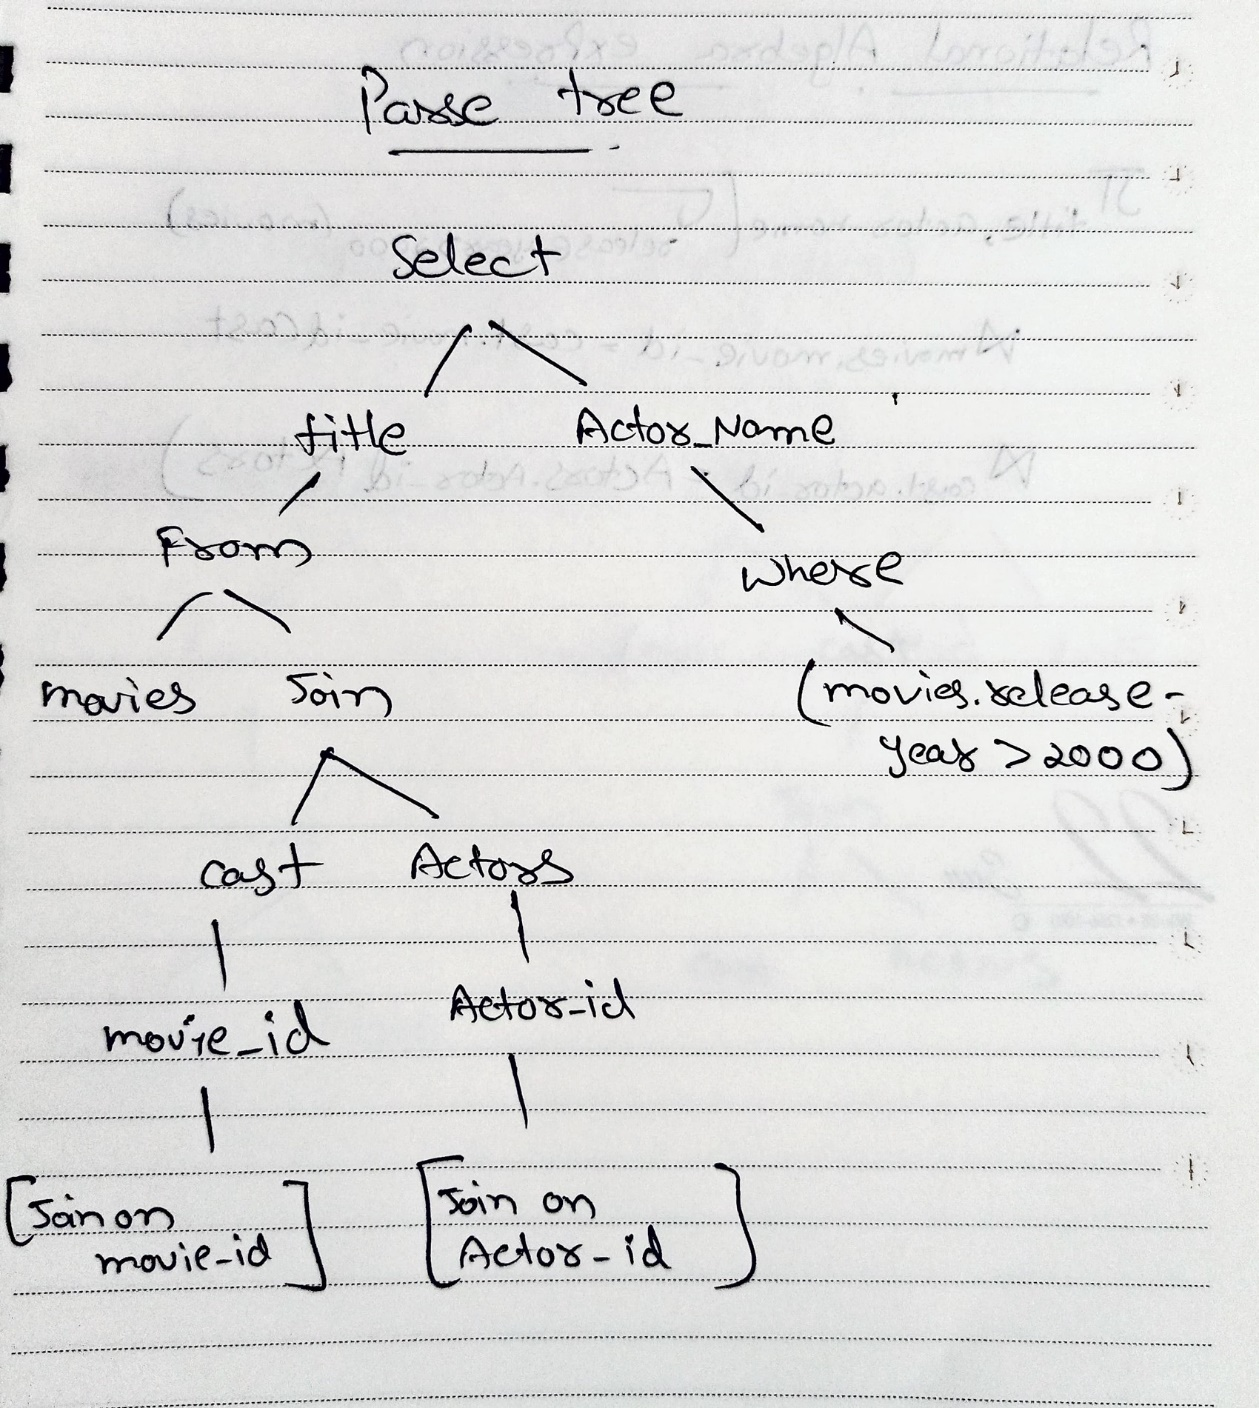 Parse tree
Select
title Actor_Name
From
where
movies Join
(movies.release-
year > 2000)
cast Actors
movie_id Actor-id
[Join on
movie-id]
[Join on
Actor-id]